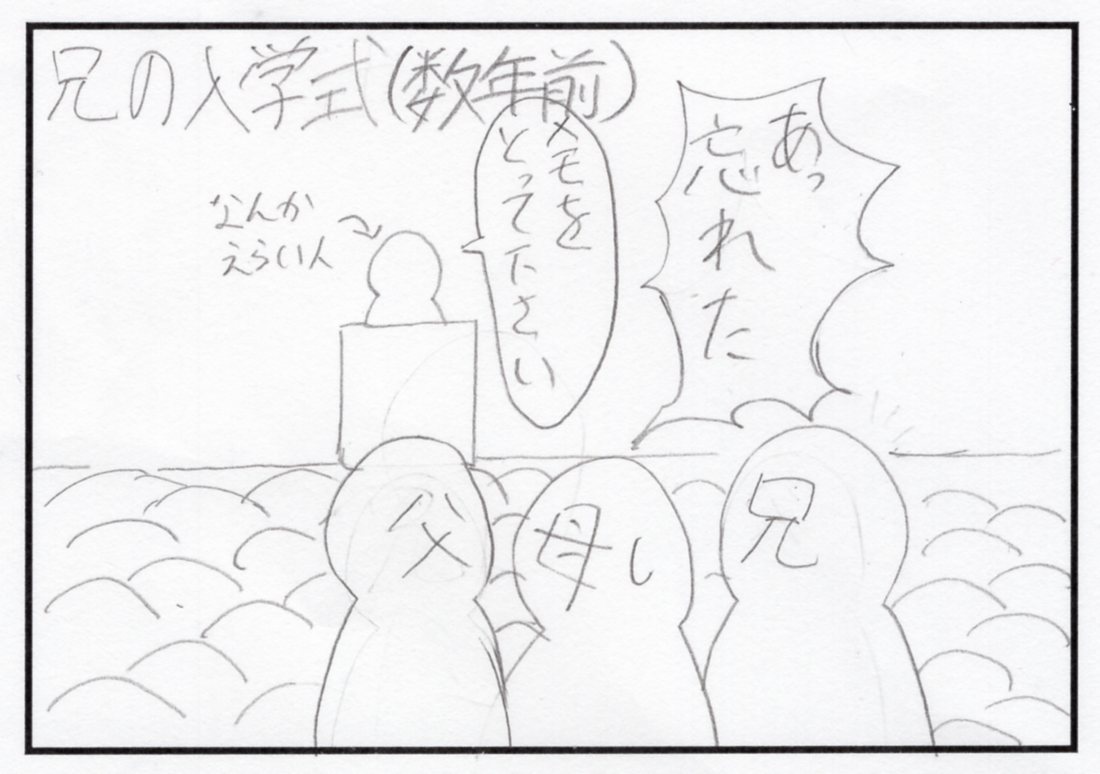 兄の入学式(数年前)
あっ
忘れた
メモを
とって下さい
なんか
えらい人
父
母し
兄